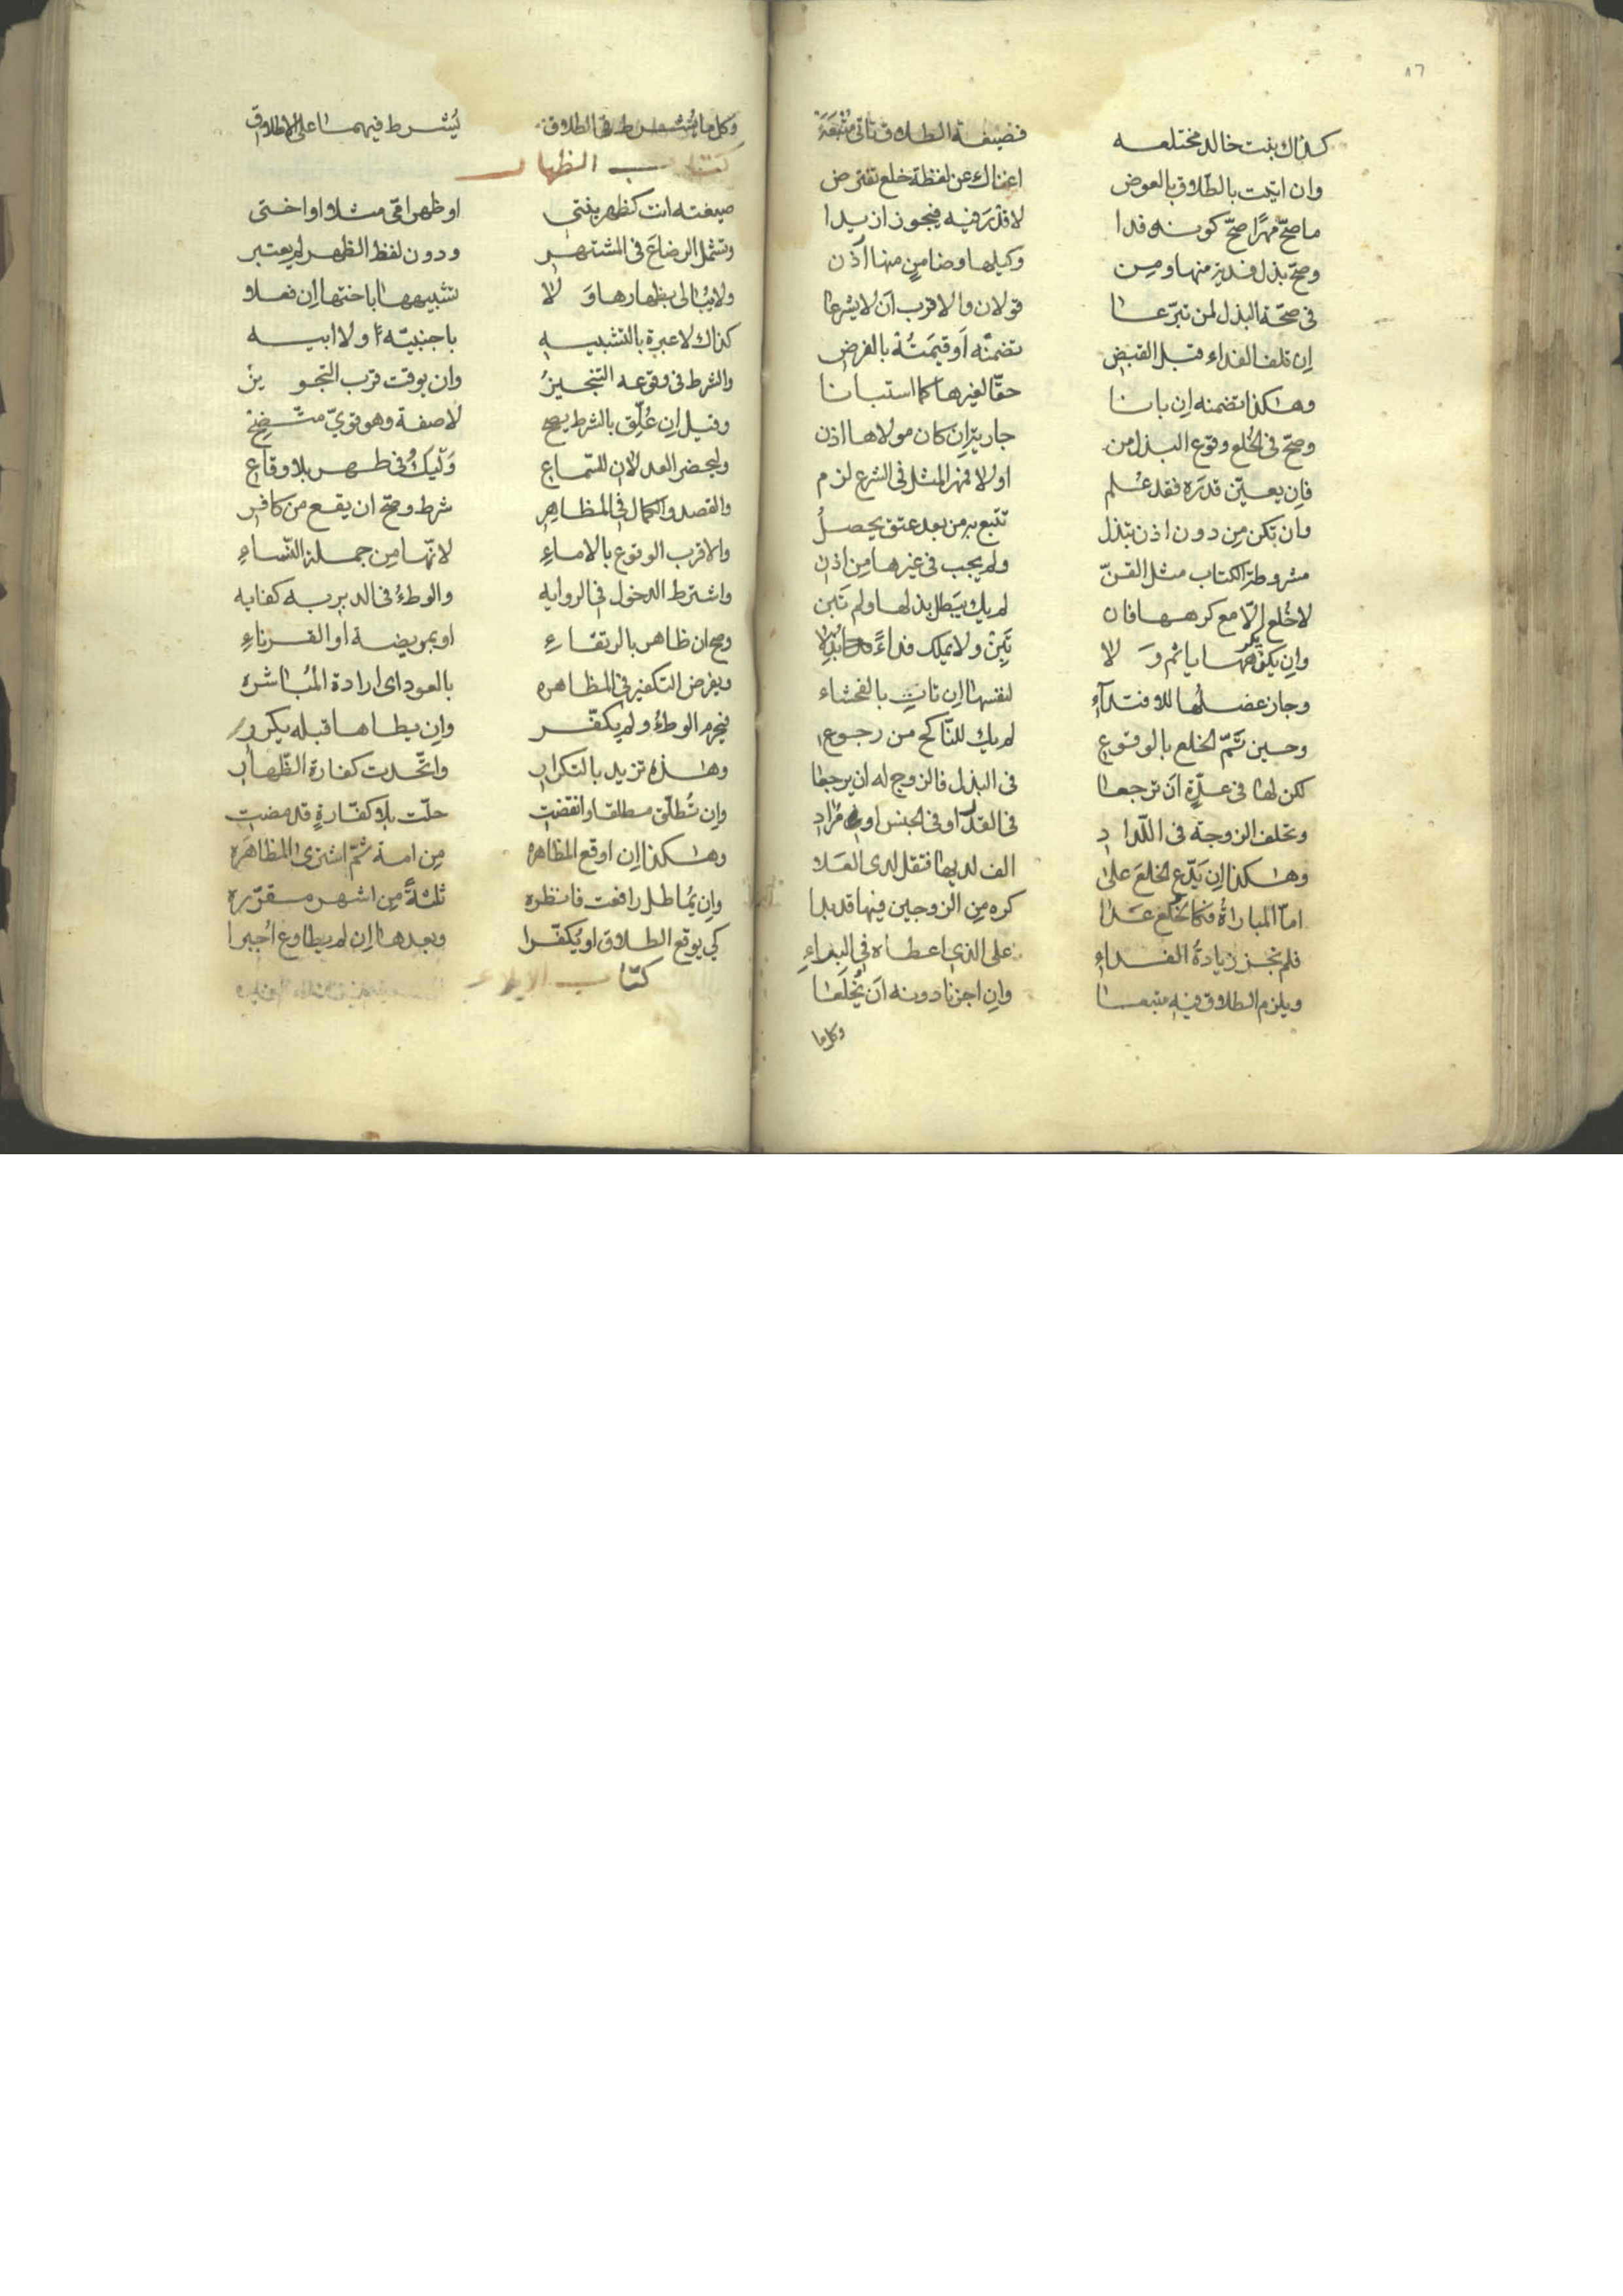 ٨٦
كذاك بنت خالد مختلعه فصيغة الطلاق تاتي متبعة
وان اتيت بالطلاق بالعوض اغناك عن لفظة خلع تفترض
ما صحّ مهرًا صحّ كونه فدا لا قدر فيه فيجوز ازيدا
وصحّ بذل فدية منها ومن وكيلها وضامن منها اذن
في صحّة البذل لمن تبرّعا قولان والاقرب ان لا يشرعا
ان تلف الفداء قبل القبض تضمنه او قيمته بالفرض
وهكذا تضمنه ان بانا حقّا لغيرها كما استبانا
وصحّ في الخلع وقوع البذل من جارية ان كان مولاها اذن
فان يعيّن قدره فقد علم اولا فمهر المثل في الشرع لزم
وان تكن من دون اذن تبذل تتبع به من بعد عتق يحصل
مشروطة الكتاب مثل القنّ ولم يجب في غيرها من اذن
لا خلع الّا مع كرهها فان لم يك يبطل بذلها ولم تبن
وان يكرهها ياثم و لا تبن ولا يملك فداءً
وجاز عضلها للافتداء لنفسها ان تات بالفحشاء
وحين تمّ الخلع بالوقوع لم يك للناكح من رجوع
لكن لها في عدّة ان ترجعا في البذل فالزوج له ان يرجعا
وتحلف الزوجة في اللّداد في القدر او في الجنس او مراد
وهكذا ان يدّع الخلع على الف لديها فتقل لدى العلا
امّا المباراة فكالخلع عدا كره من الزوجين فيها قد بدا
فلم تجز زيادة الفداء على الذي اعطاه في البداء
ويلزم الطلاق فيه متبعا وان اجزنا دونه ان يخلعا
وكل ما
وكل ما يشرط في الطلاق يشرط فيهما على الاطلاق
كتاب الظهار
صيغته انت كظهر بنتي او ظهر امّي مثلا او اختي
وتشمل الرضاع في المشتهر ودون لفظ الظهر لم يعتبر
ولا يبالى بظهارها و لا تشبيهها باختها ان فعلا
كذاك لا عبرة بالتشبيه باجنبيّة ولا ابيه
والشرط في وقوعه التنجيز وان يوقت قرب التجويز
وقيل ان علّق بالشرط يصح لا صفة وهو قويّ متّضح
وليحضر العدلان للسماع وليك في طهر بلا وقاع
والقصد والكمال في المظاهر شرط وصحّ ان يقع من كافر
والاقرب الوقوع بالاماء لانّها من جملة النّساء
واشترط الدخول في الروايه والوطء في الدبر به كفايه
وصح ان ظاهر بالرتقاء او بمريضة او القرناء
ويفرض التكفير في المظاهره بالعود اى ارادة المباشره
فيحرم الوطء ولم يكفّر وان يطاها قبله يكرر
وهذه تزيد بالتكرار واتّحدت كفارة الظّهار
وان تطلّق مطلقا وانقضت حلّت بلا كفّارة قد مضت
وهكذا ان اوقع المظاهره من امة ثمّ اشترى المظاهره
وان يماطل رافعت فانظره ثلثة من اشهر مقرّره
كي يوقع الطلاق او يكفّرا وبعدها ان لم يطاوع اجبرا
كتاب الايلاء